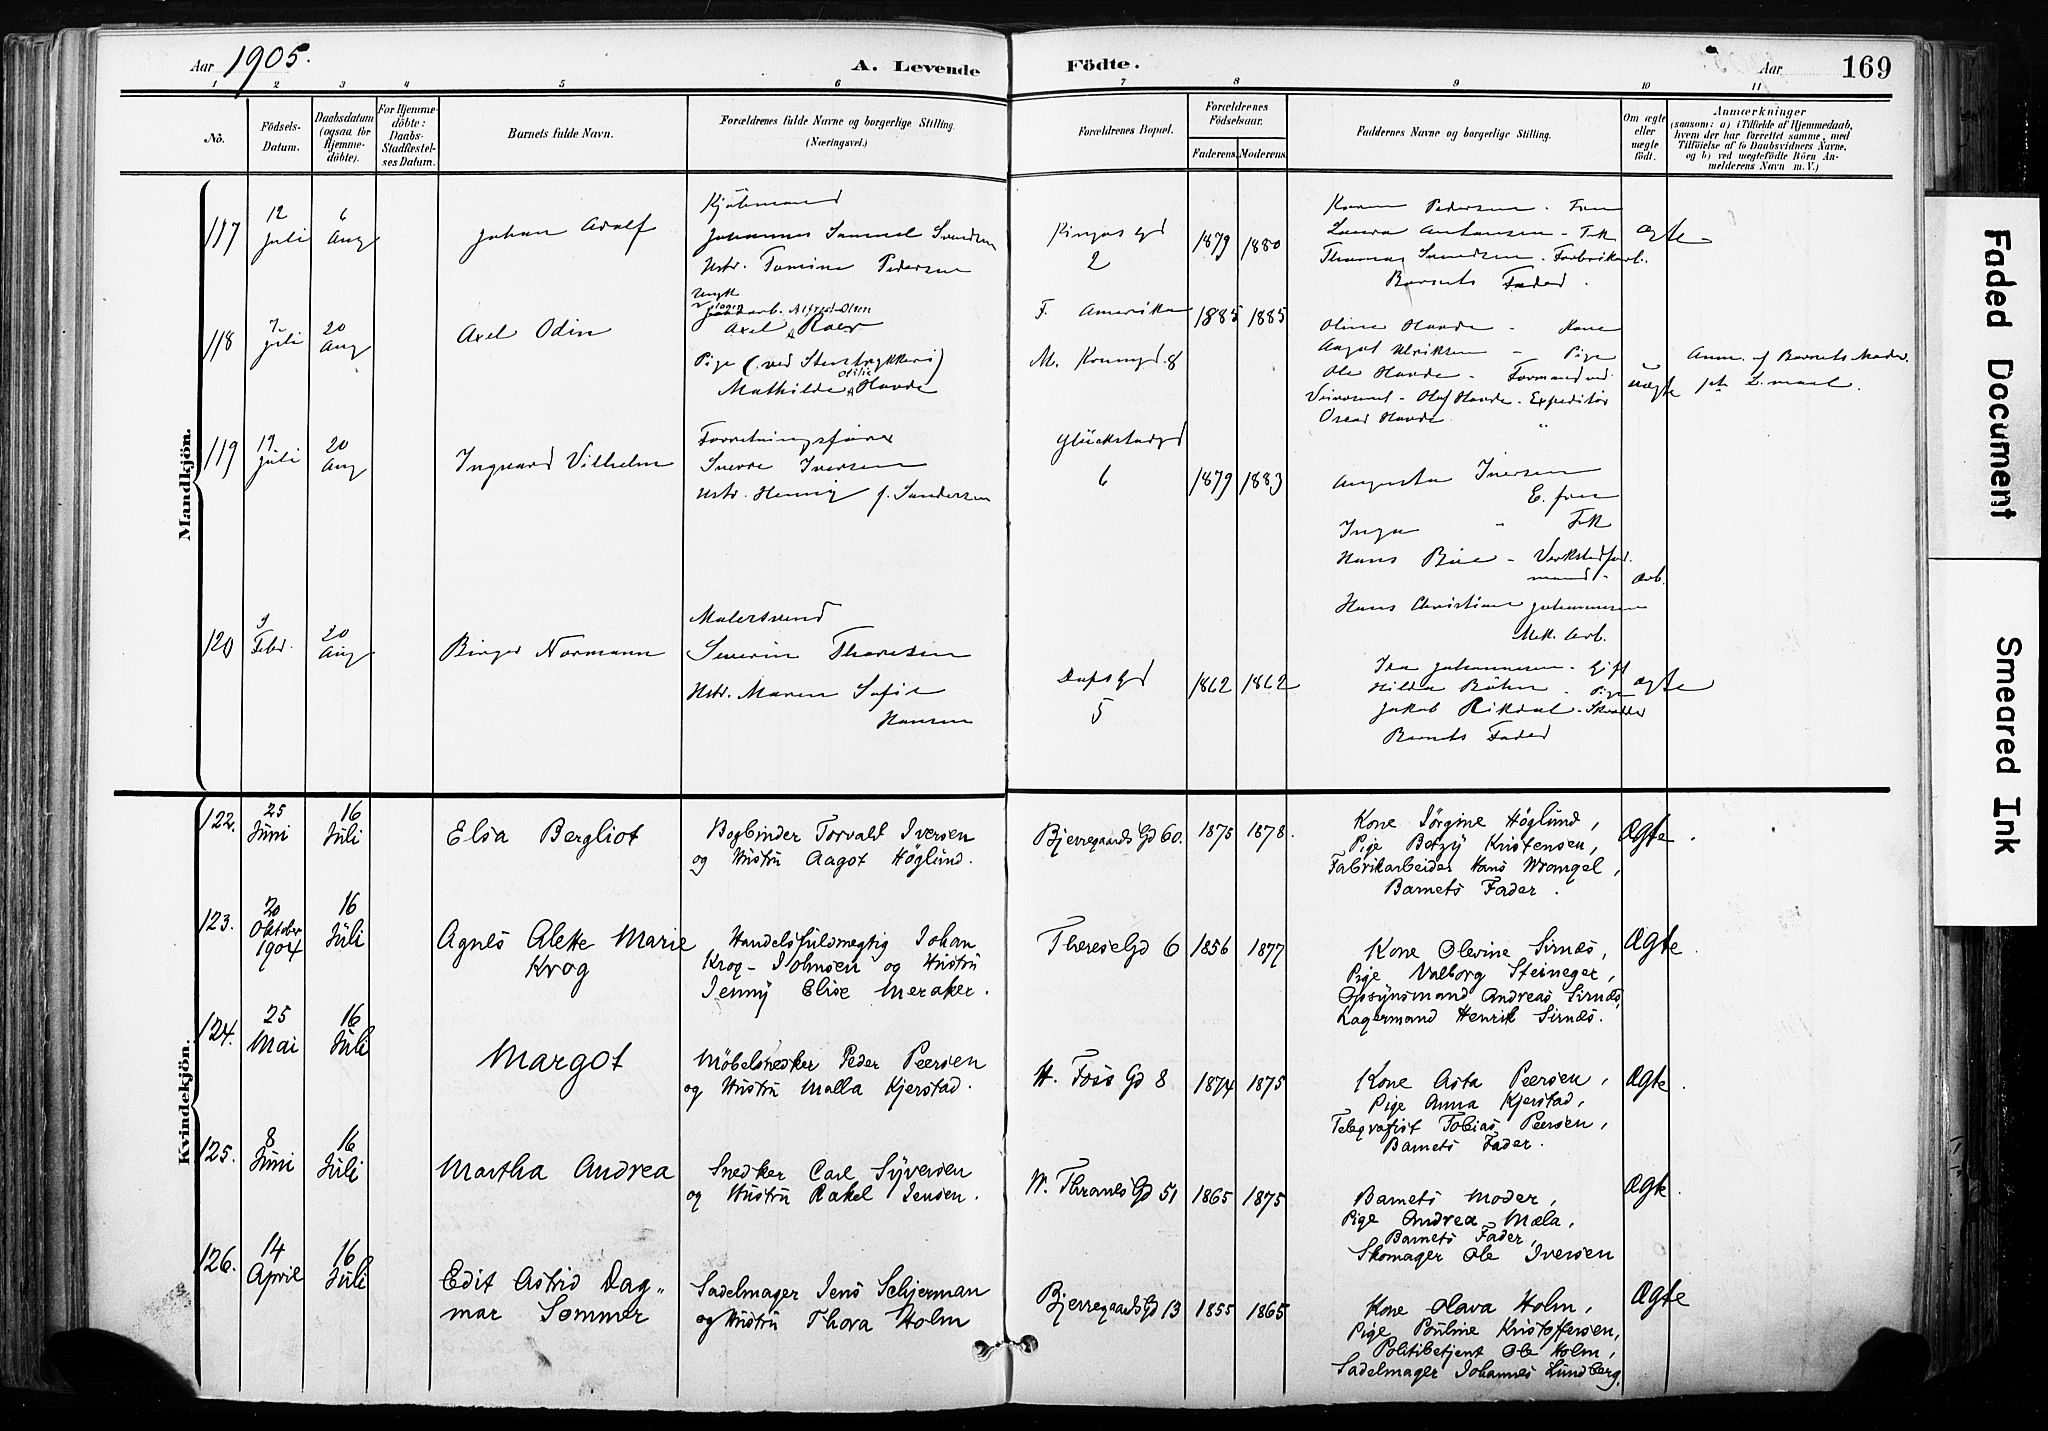 Aar 1905.
A. Levende Födte.
Aar 169
1 2 3 4 5 6 7 8 9 10 11
No.
Födsels-
Datum.
Daabsdatum
(ogsaa for
Hjemme-
döbte).
For Hjemme-
döbte:
Daabs-
Stadfæstel-
ses Datum.
Barnets fulde Navn.
Forældrenes fulde Navne og borgerlige Stilling.
(Næringsvei.)
Forældrenes Bopæl.
Forældrenes
Födselsaar.
Faderens. Moderens.
Faddernes Navne og borgerlige Stilling.
Om ægte
eller
uægte
født.
Anmærkninger
(saasom: a) i Tilfælde af Hjemmedaab,
hvem der har forrettet samme, med
Tilföielse af to Daabsvidners Navne,
og b) ved uægtefödte Börn An-
melderens Navn m. V.)
Mandkjön.
117
12
Juli
6
Aug
Johan Adolf
Kjöbmand
Johannes Samuel Svendsen
Hstr. Tomine Pedersen
2
1879 1880
Karen Pedersen - Frue
Laura Antonsen - Frk
Thomas Svendsen - Fabrikarb.
Barnets Fader.
Ægte
118
7
Juli
20
Aug
Axel Odin
Ungk
Alfred Olsen
Axel Roer
Pige (ved Stentrykkeri)
Otilie
Mathilde Hovde
F. Amerika
M. 8
1885 1885
Oline Hovde - Kone
Aagot Ulriksen - Pige
Ole Hovde - Formand ved
Veivæsenet - Olaf Hovde - Expeditör
Oscar Hovde "
uægte
Anm. af Barnets Moder.
119
19
Juli
20
Aug
Ingvard Vilhelm
Forretningsförer
Sverre Iversen
Hstr. Henny f. Sundersen
Glückstadgd
6
1879 1883
Augusta Iversen
E. frue
Inga " Frk
Hans Bue - Verkstedfor
mand -
Hans Christian Johannesen
Mek. Arb.
120
9
Febr.
20
Aug
Birger Normann
Malersvend
Severin Thoresen
Hstr. Maren Sofie
Hansen
Dopsgd
5
1862 1862
Ida Johannesen - Gift
Hilda Böhn - Pige
Jakob Rikdal - Skrædder
Barnets Fader
Ægte
Kvindekjön.
122.
25
Juni
16
Juli
Elsa Bergliot
Bogbinder Torvald Iversen
og Hustru Aagot Höglund.
Bjerregaards Gd 60.
1875 1878.
Kone Jörgine Höglund,
Pige Betzy Kristensen,
Fabrikarbeider Hans Wrangel,
Barnets Fader.
Ægte.
123.
20
Oktober
1904
16
Juli
Agnes Alette Marie
Krog
Handelsfuldmegtig Johan
Krog-Johnsen og Hustru
Jenny Elise Meraker.
Therese Gd 6
1856 1877
Kone Olevine Sirnæs,
Pige Valborg Steineger,
Opsynsmand Andreas Sirnæs,
Lagermand Henrik Sirnæs.
Ægte.
124.
25
Mai
16
Juli
Margot
Möbelsnedker Peder Peersen
og Hustru Malla Kjerstad.
H. Foss Gd 8
1874 1875
Kone Asta Peersen,
Pige Anna Kjerstad,
Telegrafist Tobias Peersen,
Barnets Fader.
Ægte.
125.
8
Juni
16
Juli
Martha Andrea
Snedker Carl Syversen
og Hustru Rakel Jensen.
W. Thranes Gd 51
1865 1875
Barnets Moder,
Pige Andrea Mæla,
Barnets Fader,
Skomager Ole Iversen
Ægte.
126.
14
April
16
Juli
Edit Astrid Dag-
mar Sommer
Sadelmager Jens Schjerman
og Hustru Thora Holm
Bjerregaards Gd 13
1855 1865
Kone Olava Holm,
Pige Pouline Kristoffersen,
Politibetjent Ole Holm,
Sadelmager Johannes Lundberg.
Ægte
Faded Document
Smeared Ink